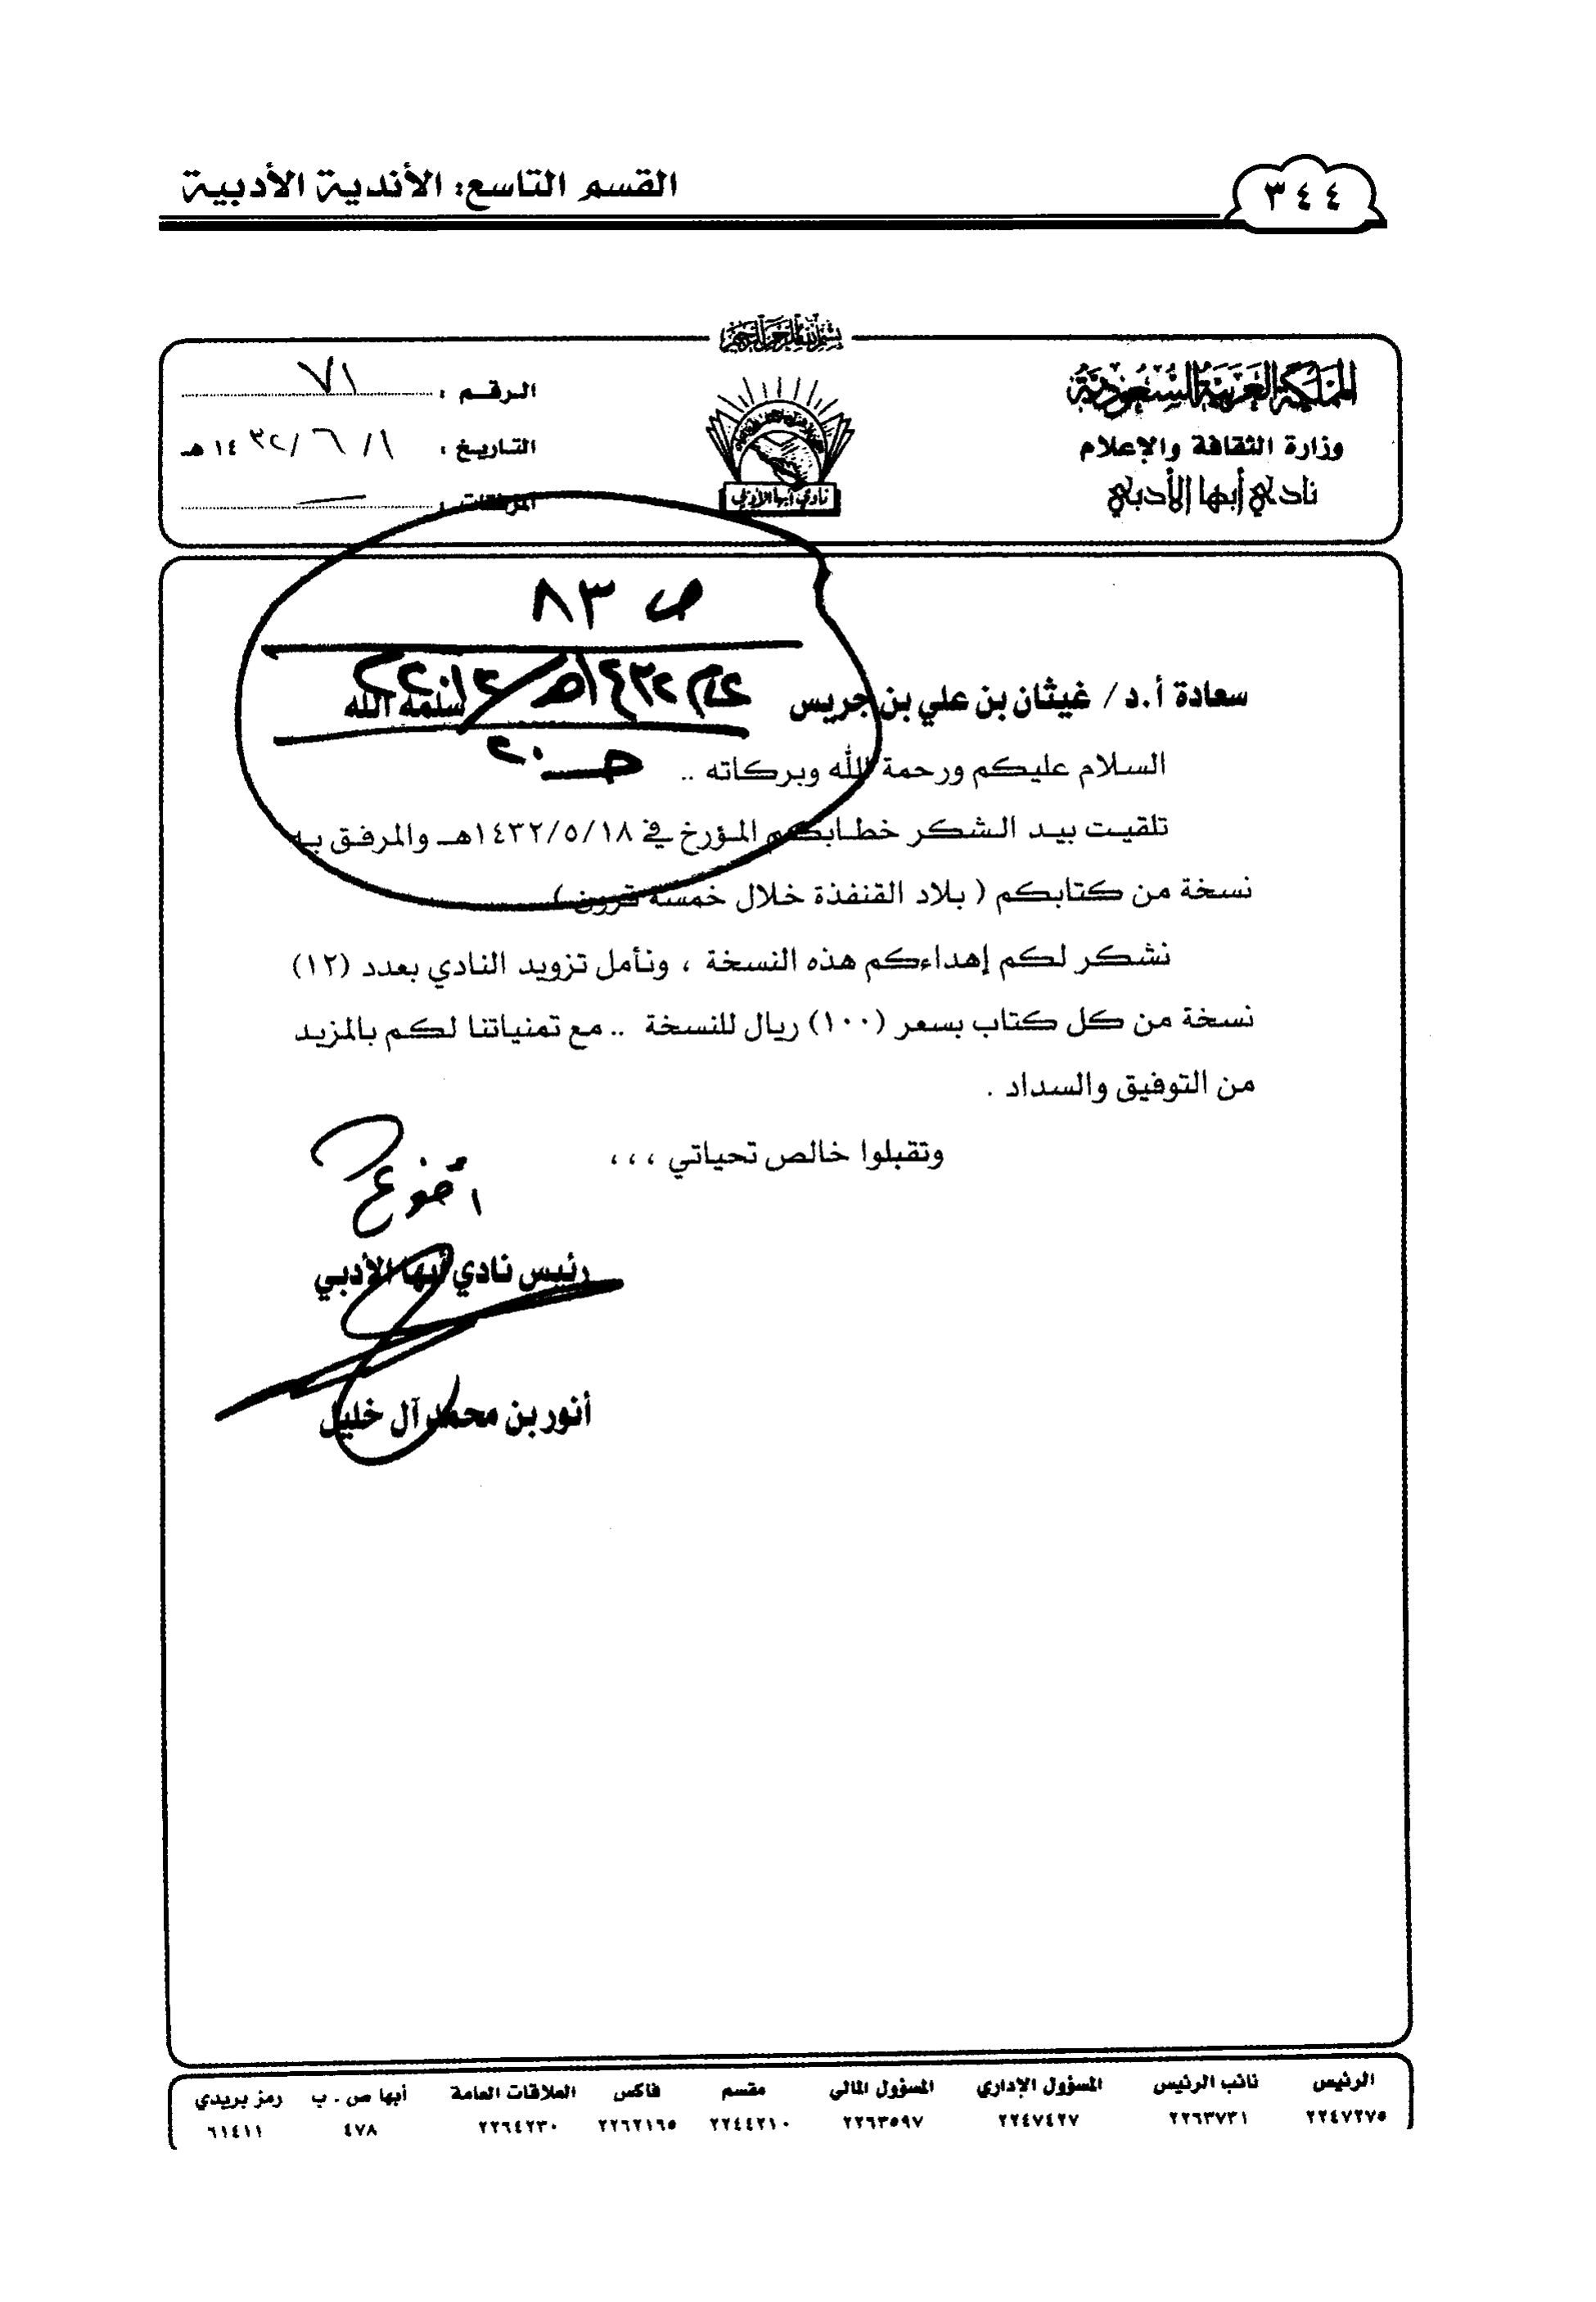 القسم التاسع: الأندية الأدبية
٣٤٤
بسم الله الرحمن الرحيم
المملكة العربية السعودية
وزارة الثقافة والإعلام
نادي أبها الأدبي
الرقم : ٧١
التاريخ : ١ / ٦ / ١٤٣٢ هـ
المرفقات :
نادي أبها الأدبي
ص ٨٣
عام ١٤٣٢هـ /
سعادة أ.د/ غيثان بن علي بن جريس سلمه الله
السلام عليكم ورحمة الله وبركاته ..
تلقيت بيد الشكر خطابكم المؤرخ في ١٤٣٢/٥/١٨هـ والمرفق به
نسخة من كتابكم ( بلاد القنفذة خلال خمسة قرون )
نشكر لكم إهداءكم هذه النسخة ، ونأمل تزويد النادي بعدد (١٢)
نسخة من كل كتاب بسعر (١٠٠) ريال للنسخة .. مع تمنياتنا لكم بالمزيد
من التوفيق والسداد .
وتقبلوا خالص تحياتي ،،،
رئيس نادي أبها الأدبي
أنور بن محمد آل خليل
الرئيس نائب الرئيس المسؤول الإداري المسؤول المالي مقسم فاكس العلاقات العامة أبها ص . ب رمز بريدي
٢٢٤٧٢٧٥ ٢٢٦٣٧٣١ ٢٢٤٧٤٢٧ ٢٢٦٣٥٩٧ ٢٢٤٤٢١٠ ٢٢٦٢١٦٥ ٢٢٦٤٢٣٠ ٤٧٨ ٦١٤١١